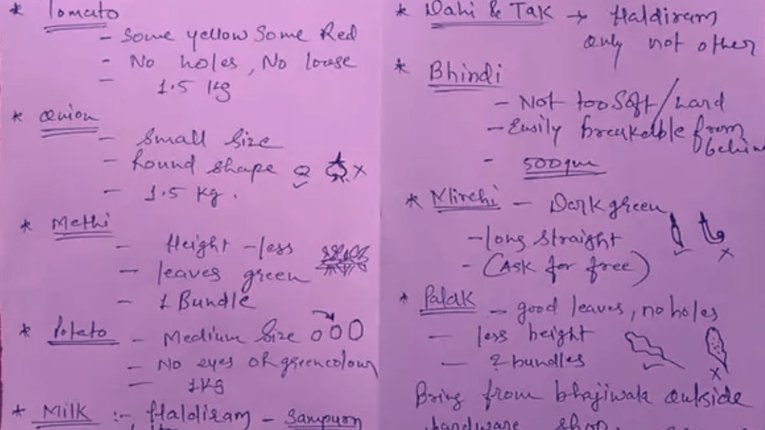 * Tomato
- Some yellow Some Red
- No holes, No loose
- 1.5 kg
* Onion
- Small size
- Round shape
- 1.5 kg.
* Methi
- Height - less
- leaves green
- 1 Bundle
* Potato - Medium Size
- No eyes or green colour
- 1 kg
* Milk :- Haldiram - Sampurn
* Dahi & Tak → Haldiram
only not other
* Bhindi
- Not too soft/hard
- Easily breakable from
behin
- 500gm
* Mirchi - Dark green
- long straight
- (Ask for free)
* Palak - good leaves, no holes
- less height
- 2 bundles
Bring from bhajiwala outside
hardware shop